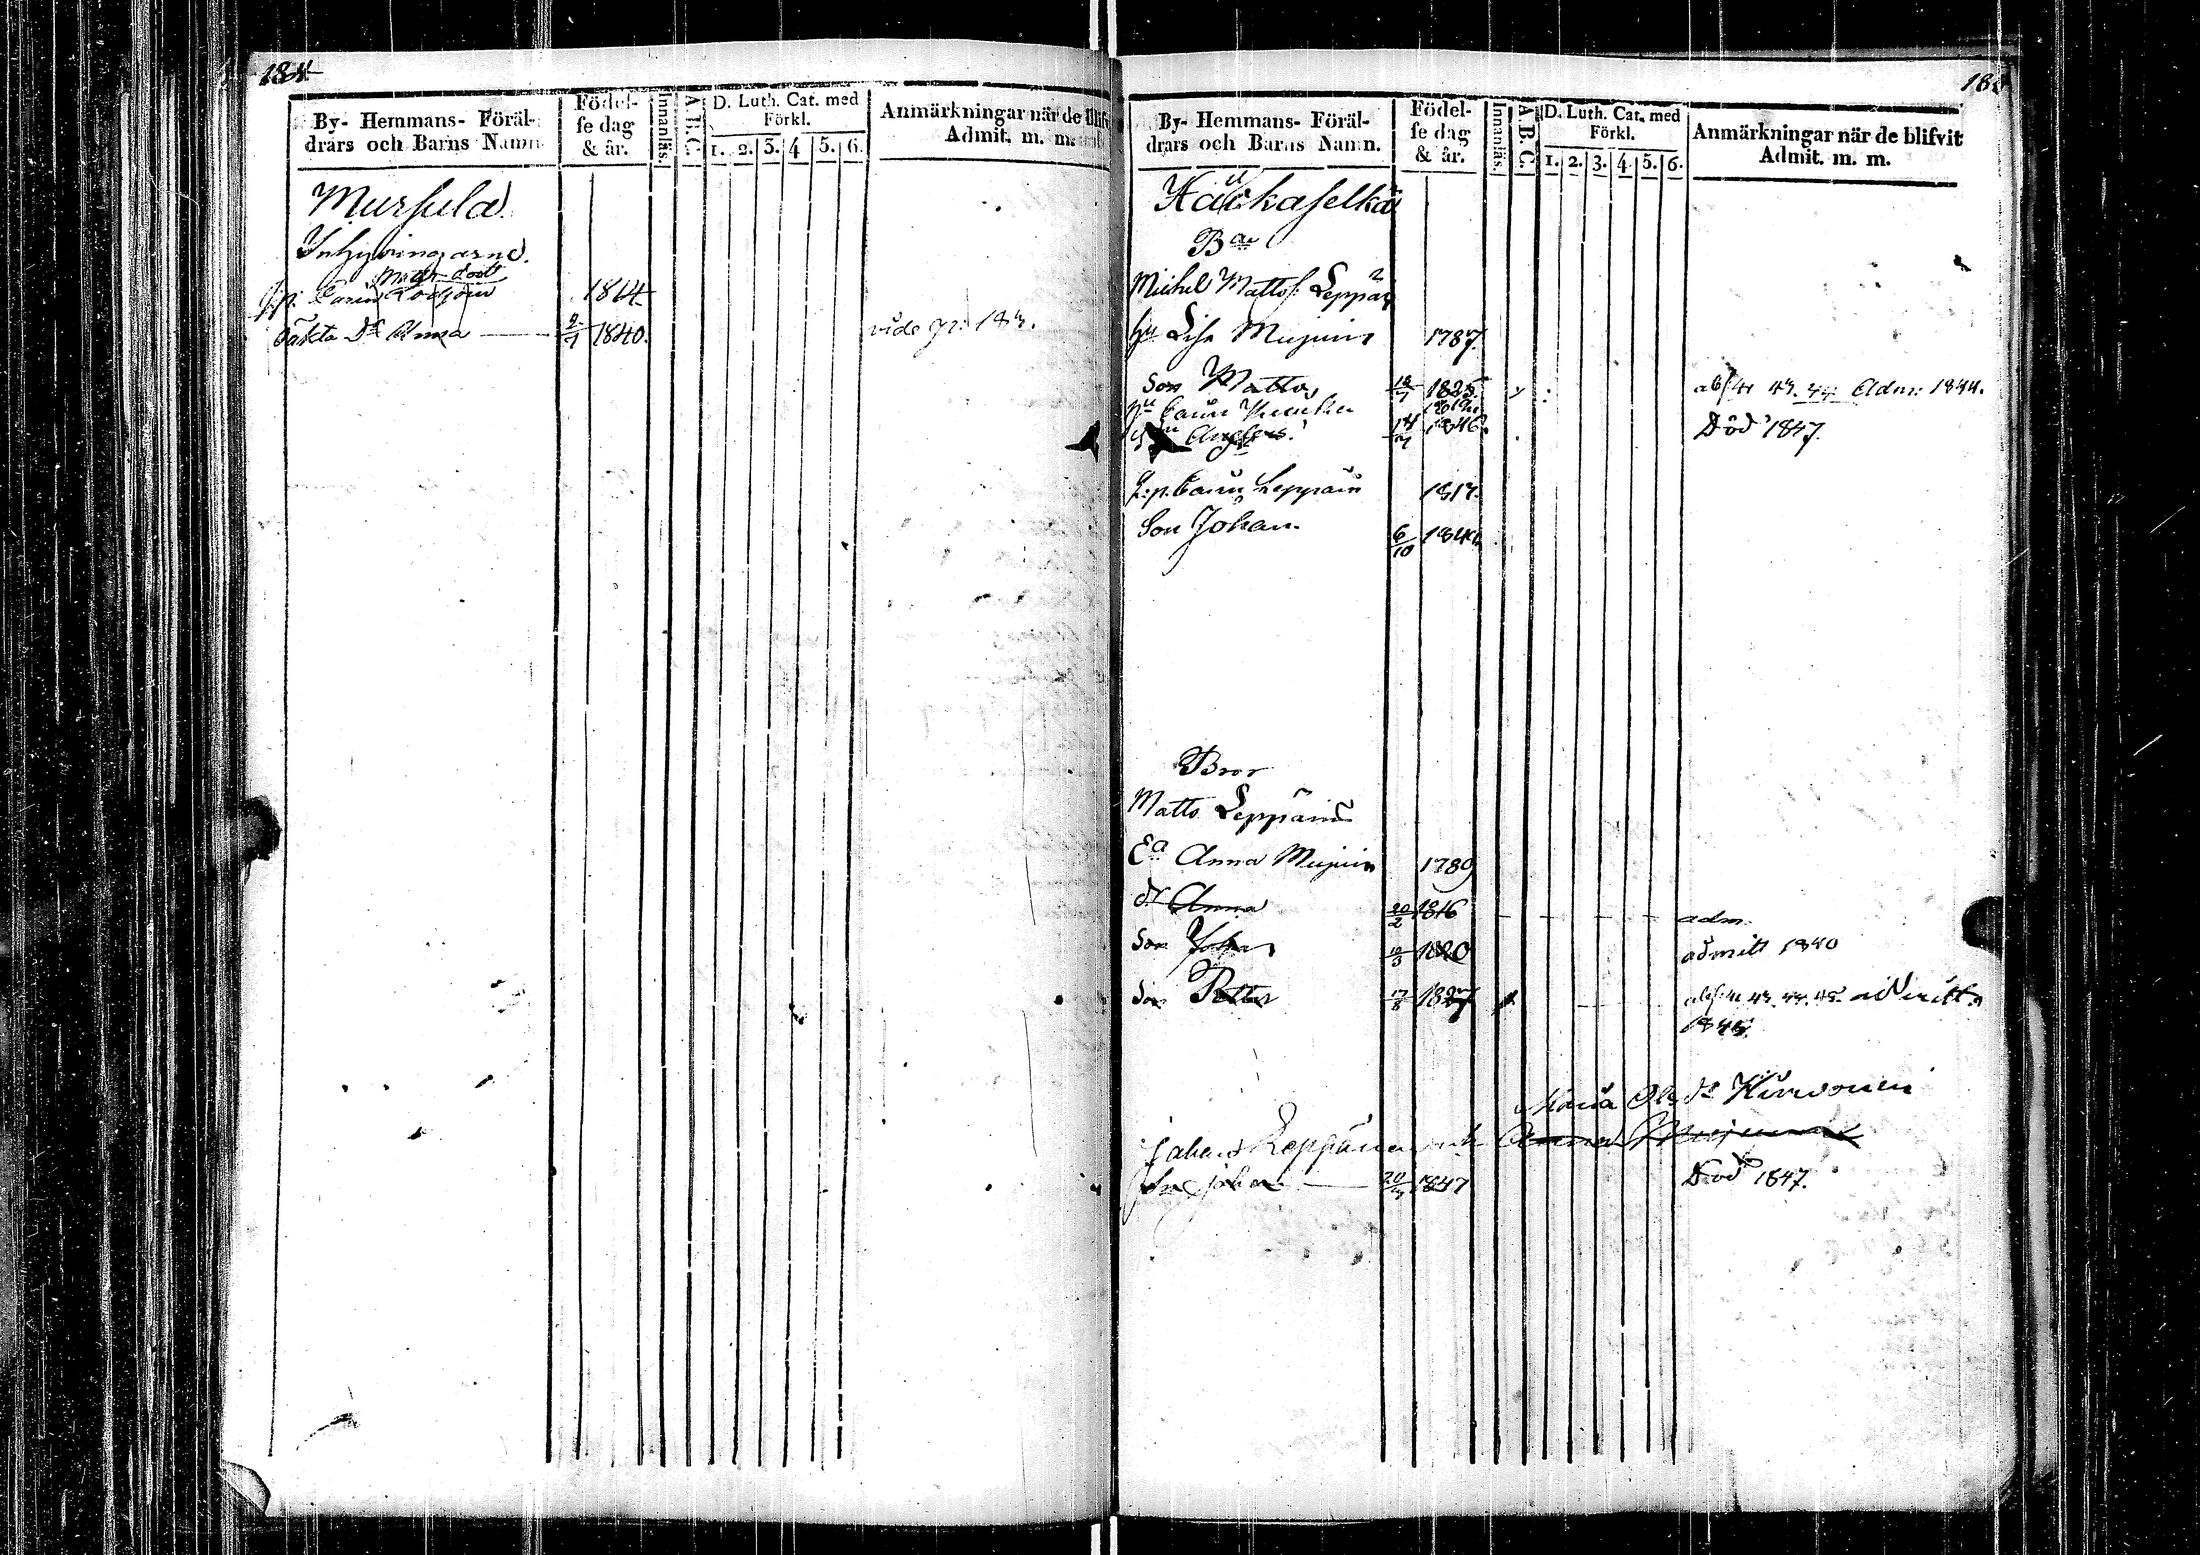 184
By- Hemmans- Föräl-
drars och Barns Namn.
Födel-
se dag
& år.
Innanläs.
A. B. C.
D. Luth. Cat. med
Förkl.
1. 2. 3. 4 5. 6.
Anmärkningar när de blifv
Admit. m. m.
Mursula
Inhysingarne.
Carin 1814
oäkta Dr Anma 1840.
vide p: 183.
By- Hemmans- Föräl-
drars och Barns Namn.
Födel-
se dag
& år.
Innanläs.
A. B. C.
D. Luth. Cat. med
Förkl.
1. 2. 3. 4 5. 6.
Anmärkningar när de blifvit
Admit. m. m.
Michel Matts: Leppän
hu Lisa Mujuin 1787.
Son Matts 1825. 43. 44 Adm: 1844.
hu Carin
Anders 14 1846. Död 1847.
Q.p. Carin Leppäin 1817.
Son Johan 6/10 184
Bror
Matts Leppäin
Ea Anna Mujuin 1789
dr Anna 20/2 1816 adm.
Son Johan 1820 admitt 1840
Son Petter 17/8 1827 43. 44. 45. admitt.
1845.
Maria Ols dr Hirvonen
Johan Leppänen och Anna Mujunen
Son Johan 20 1847 Död 1847.